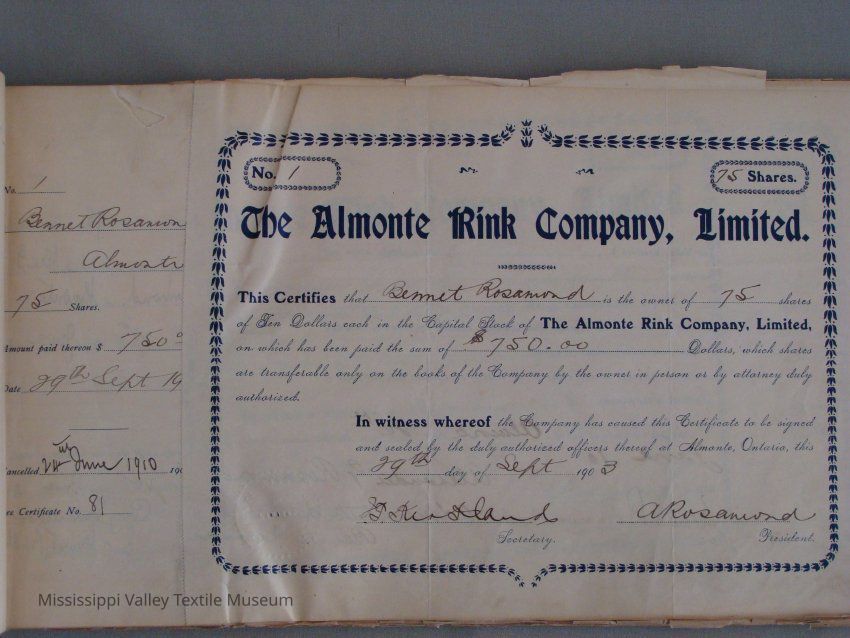 No. 1
Bennet Rosamon
Almonte
75 Shares.
Amount paid thereon $ 750
Date 29th Sept 19
Cancelled June 1910 190
ee Certificate No. 81
No. 1
75 Shares.
The Almonte Rink Company, Limited.
This Certifies that Bennet Rosamond is the owner of 75 shares
of Ten Dollars each in the Capital Stock of The Almonte Rink Company, Limited,
on which has been paid the sum of $750.00 Dollars, which shares
are transferable only on the books of the Company by the owner in person or by attorney duly
authorized.
In witness whereof the Company has caused this Certificate to be signed
and sealed by the duly authorized officers thereof at Almonte, Ontario, this
29th day of Sept 1903
A Rosamond
Secretary. President.
Mississippi Valley Textile Museum